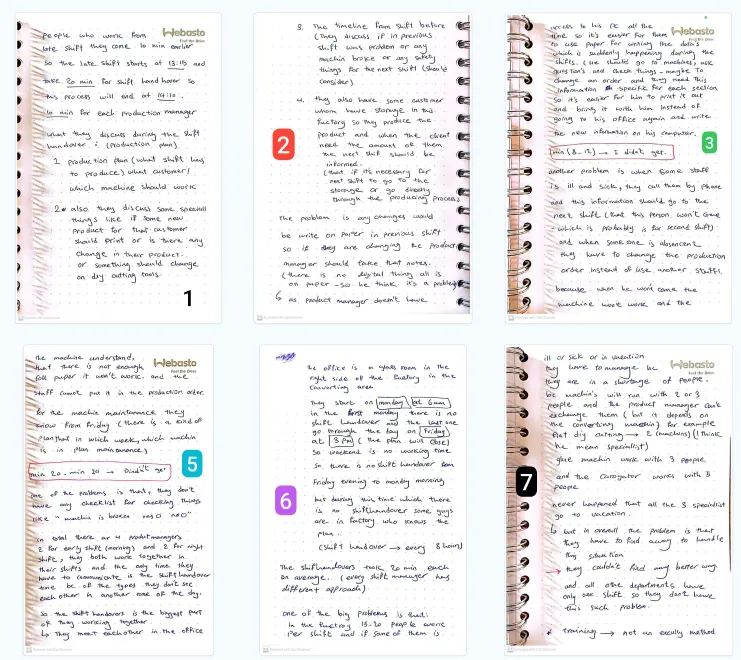 people who work from
late shift they come 10 min earlier
so the late shift starts at 13:15 and
take 20 min for shift hand hover so
this process will end at 14:10.
10 min for each production manager
what they discuss during the shift
handover: (production plan)
1 production plan (what shift has
to produce) what customer/
which machine should work
2 also they discuss some special
things like if some new
product for that customer
should print or is there any
change in their product.
or something should change
on dry cutting tools.
1
Webasto
Feel the Drive
3. The timeline from shift before
(they discuss if in previous
shift was problem or any
machin broke or any safety
things for the next shift (should
consider)
4. they also have some customer
whom have storage in this
factory so they produce the
product and when the client
need the amount of them
the next shift should be
informed.
(that if it's necessary for
next shift to go to the
storage or go directly
through the producing process)
The problem is any changes would
be write on paper in previous shift
so if they are changing the product
manager should take that notes.
(there is no digital thing all is
on paper - so he think it's a problem)
as product manager doesn't have
2
access to his PC all the
time so it's easier for them
to use paper for writing the data's
which is suddenly happening during the
shifts. (he should go to machines, ask
questions and check things - maybe to
change an order and they need this
information specific for each section
so it's easier for him to print it out
and bring it with him instead of
going to his office again and write
the new information on his computer.
min (8-12) → I didn't get.
another problem is when some staff
is ill and sick, they call them by phone
and this information should go to the
next shift (that this person won't come
which is probably is for second shift)
and when someone is absencent
they have to change the production
order instead of use another staffs.
because when he won't come the
machine won't work and the
3
Webasto
Feel the Drive
the machine understand,
that there is not enough
foil paper it won't work. and the
staff cannot put it in the production order.
for the machine maintenance they
know from Friday (there is a kind of
plan that in which week, which machin
is in plan maintanance)
min 20 - min 20 → Didn't get
one of the problems is that, they don't
have any checklist for checking things
like "machin is broken yes □ no □"
in total there ar 4 product managers
2 for early shift (morning) and 2 for night
shift, they both work together in
their shifts and the only time they
have to communicate is the shift handover
time bc of the types they don't see
each other in another time of the day.
so the shift handovers is the biggest part
of they working together.
↳ They meet each other in the office
5
Webasto
Feel the Drive
the office is a glass room in the
right side of the factory in the
converting area
They start on monday at 6am
in the first monday there is no
shift handover and the last one
go through the day on Friday
at 3 PM (the plan will close)
so weekend is no working time
so there is no shift handover from
Friday evening to monday morning
but during this time which there
is no shifthandover some guys
are in factory who knows the
plan.
(shift handover → every 8 hours)
The shifthandovers took 20 min each
on average. (every shift manager has
different approach)
one of the big problems is that:
in the factroy 15-20 people work
per shift and if some of them is
6
ill or sick or in vacation
they have to manage bc
they are in a shortage of people.
bc machin's will run with 2 or 3
people and the product manager can't
exchange them (but it depends on
the converting machin) for example
flat die cutting → 2 (machins) (I think
he mean specialist)
glue machin work with 3 people
and the corrugator works with 3
people
never happened that all the 3 specialist
go to vacation.
↳ but in overall the problem is that
they have to find a way to handle
this situation
→ they couldn't find any better way.
and all other departments have
only one shift so they don't have
this such problem.
* Training → not an excully method
7
Webasto
Feel the Drive